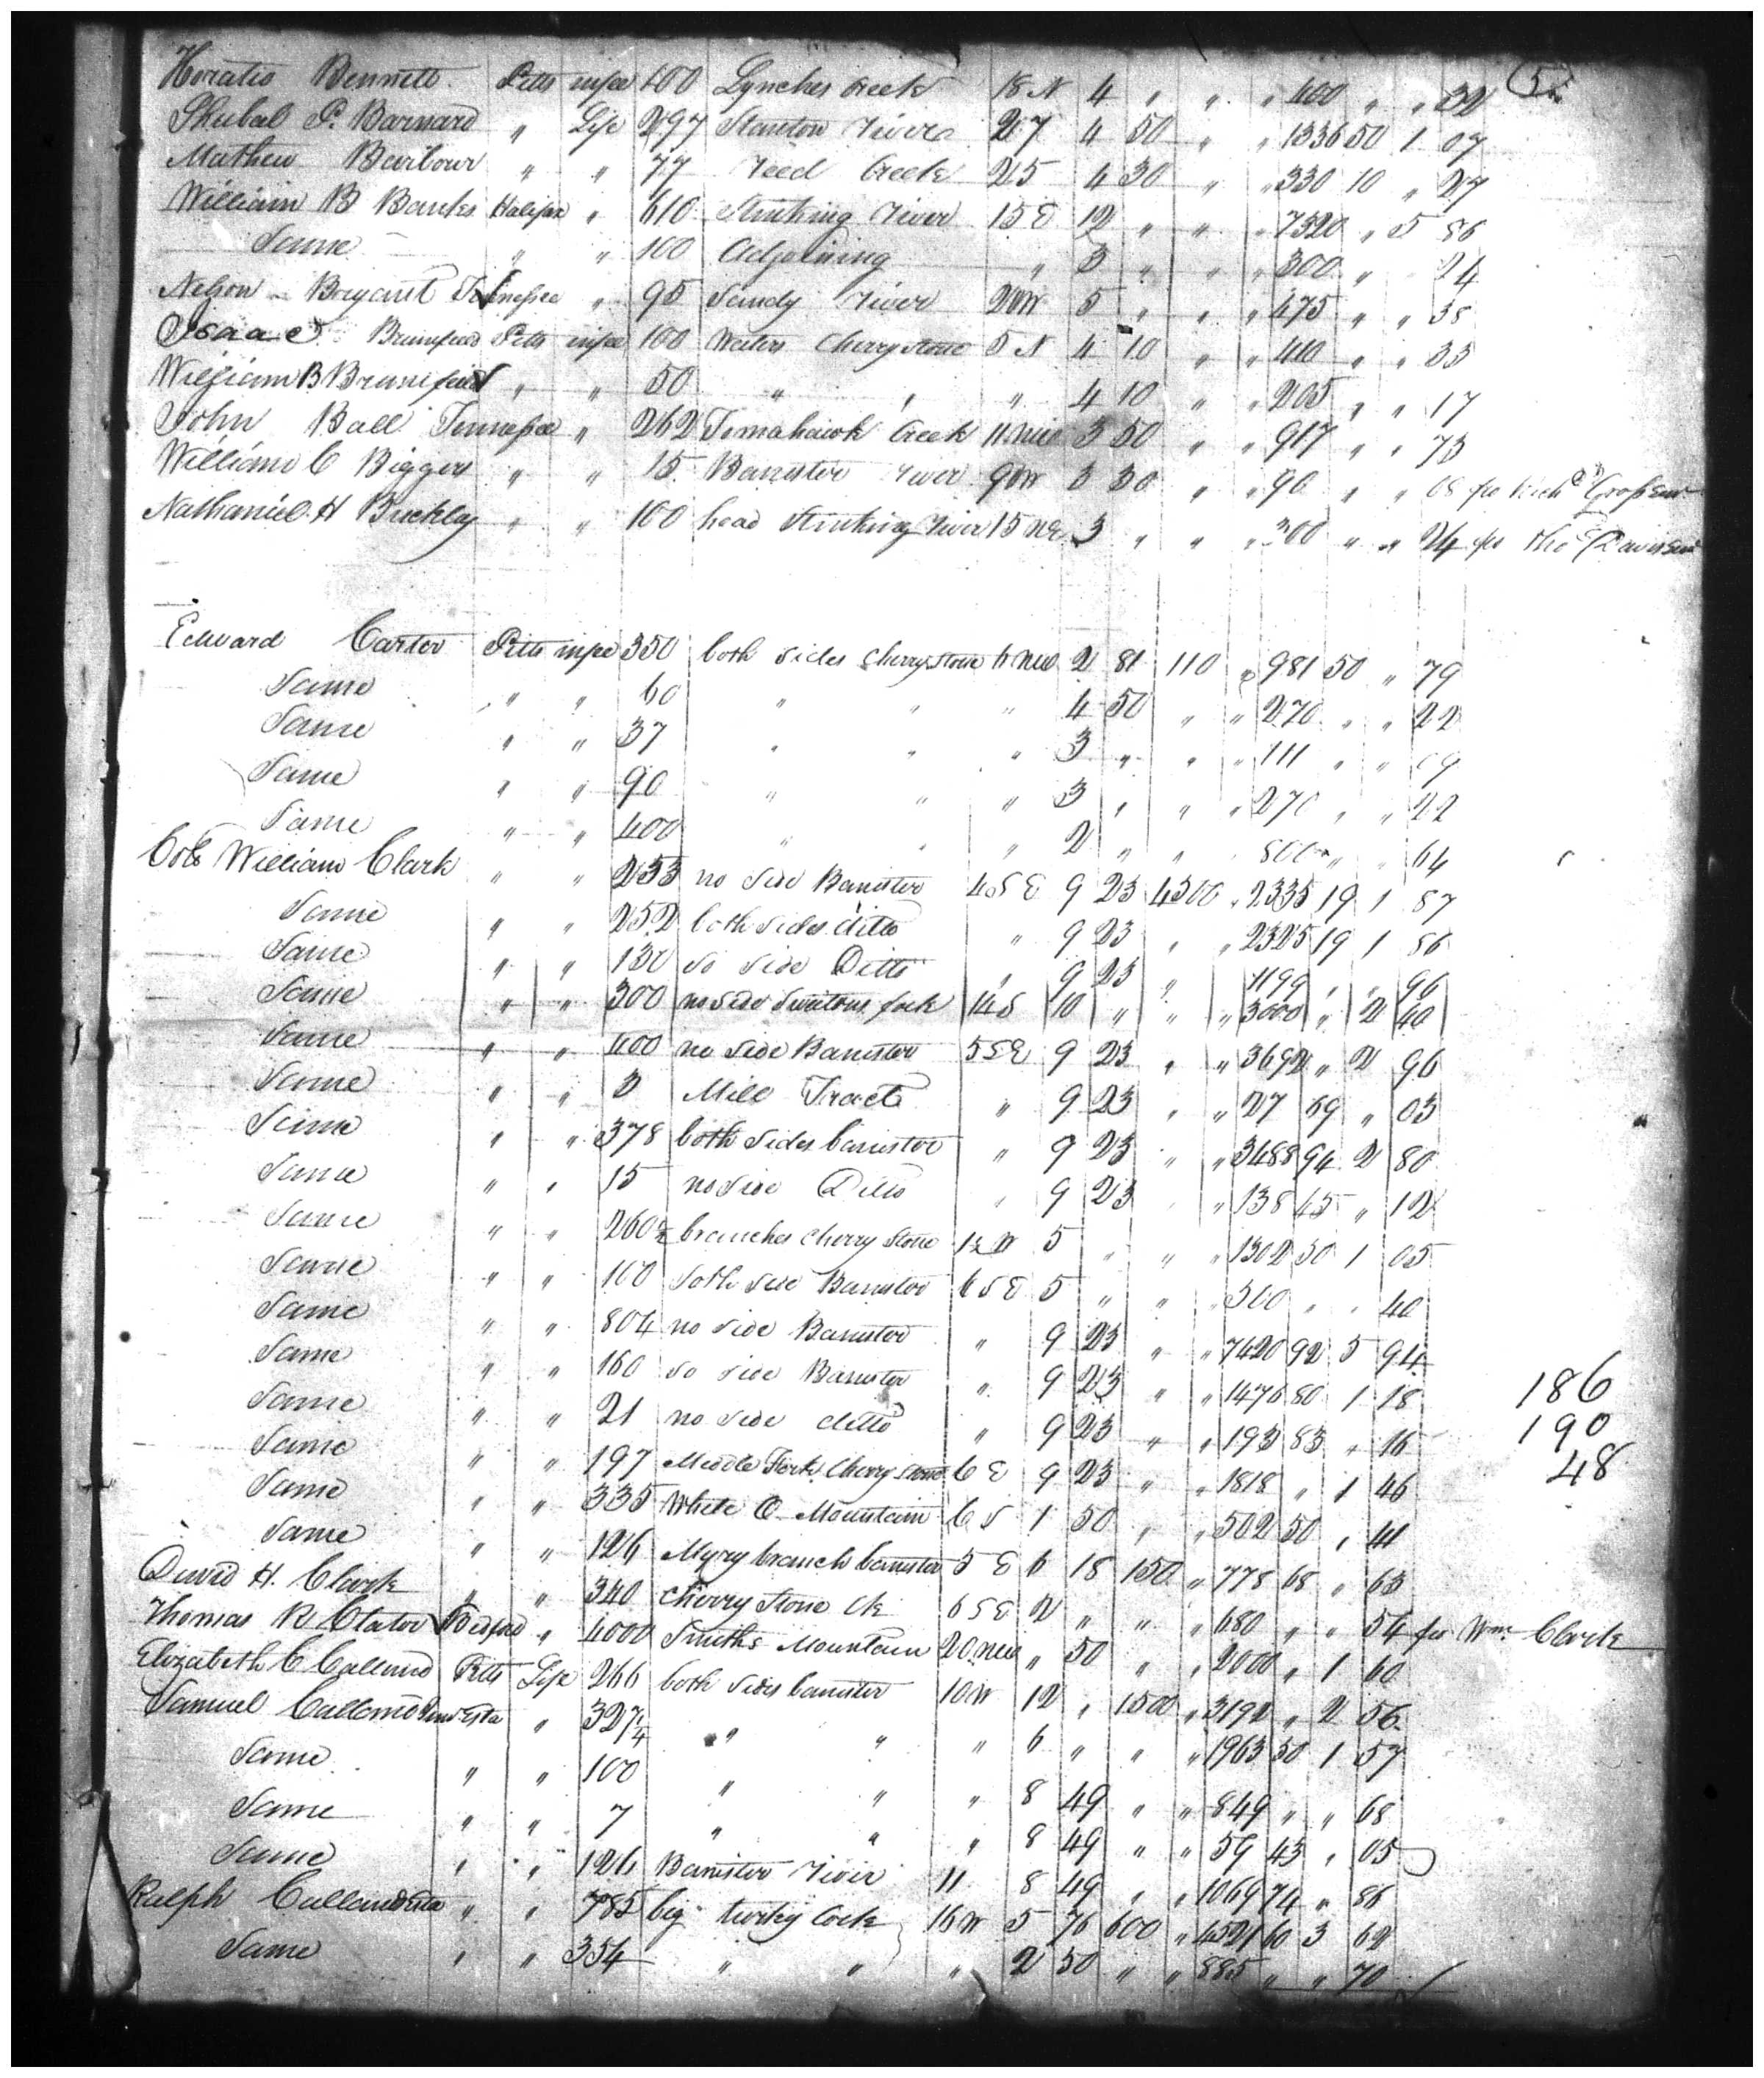 5
Horatio Bennett Pitts infee 100 Lynches Creek 18 N 4 " " " 400 " " 32
Shubal P. Barnard " Life 297 Stanton River 27 4 50 " " 1336 50 1 07
Mathew Barbour " " 77 Reed Creek 25 4 30 " " 330 10 " 27
William B Banks Halifax " 610 Stinking River 15 E 12 " " " 7320 " 5 86
Same " " 100 Adjoining " 3 " " " 300 " 24
Nelson Bryant Tennessee " 95 Sandy River 20 W 5 " " " 475 " " 38
Isaac Brumfield Pitts infee 100 Waters Cherrystone 5 N 4 10 " " 410 " " 33
William B Brumfield " " 50 " " " 4 10 " " 205 " " 17
John Ball Tennessee " 262 Tomahawk Creek 11 NW 3 50 " " 917 " " 73
William C Biggers " " 15 Banister River 9 W 3 30 " " 90 " " 08 fr
Nathaniel H Buckley " " 100 head Stinking River 15 NE 3 " " " 300 " " 24 fr Tho
Edward Carter Pitts infee 350 both sides Cherrystone 6 NW 2 81 110 " 981 50 " 79
Same " " 60 " " " 4 50 " " 270 " " 22
Same " " 37 " " " 3 " " " 111 " " 09
Same " " 90 " " " 3 " " " 270 " " 22
Same " " 400 " " " 2 " " 800 " " 64
Col William Clark " " 253 no side Banister 4 S E 9 23 4300 " 2335 19 1 87
Same " " 252 both sides ditto " 9 23 " " 2325 19 1 86
Same " " 130 So side Ditto " 9 23 " 1199 " " 96
Same " " 300 no side fork 14 S 10 " " " 3000 " 2 40
Same " " 400 no side Banister 5 S E 9 23 " " 3692 " 2 96
Same " " 3 Mill Tract " 9 23 " " 27 69 " 03
Same " " 378 both sides banister " 9 23 " " 3488 94 2 80
Same " " 15 no side Ditto " 9 23 " " 138 45 " 12
Same " " 260½ branches Cherry Stone 1½ W 5 " " " 1302 50 1 05
Same " " 100 South side Banister 6 S E 5 " " " 500 " " 40
Same " " 804 no side Banister " 9 23 " " 7420 92 5 94
Same " " 160 So side Banister " 9 23 " " 1476 80 1 18
186
Same " " 21 no side ditto " 9 23 " " 193 83 " 16
190
Same " " 197 Middle Fork Cherry Stone 6 E 9 23 " " 1818 " 1 46
48
Same " " 335 White O Mountain 6 S 1 50 " " 502 50 " 41
Same " " 126 Myry branch banister 5 E 6 18 150 " 778 68 " 63
David H. Clark " " 340 Cherry Stone Ck 6 S E 2 " " " 680 " " 54 fr Wm Clark
Thomas R Clator Bedford " 4000 Smiths Mountain 20 NW " 50 " " 2000 " 1 60
Elizabeth C Calland Pitts Life 266 both sides banister 10 W 12 " 1500 " 3192 " 2 56
Samuel Callands Esta " 327¼ " " " 6 " " " 1963 50 1 57
Same " " 100 " " " 8 49 " " 849 " " 68
Same " " 7 " " " 8 49 " " 59 43 " 05
Same " " 126 Banister River 11 8 49 " " 1069 74 " 86
Ralph Callands Esta " " 785 big turkey Cock 16 W 5 76 600 " 4521 60 3 62
Same " " 354 " " " 2 50 " " 885 " " 70